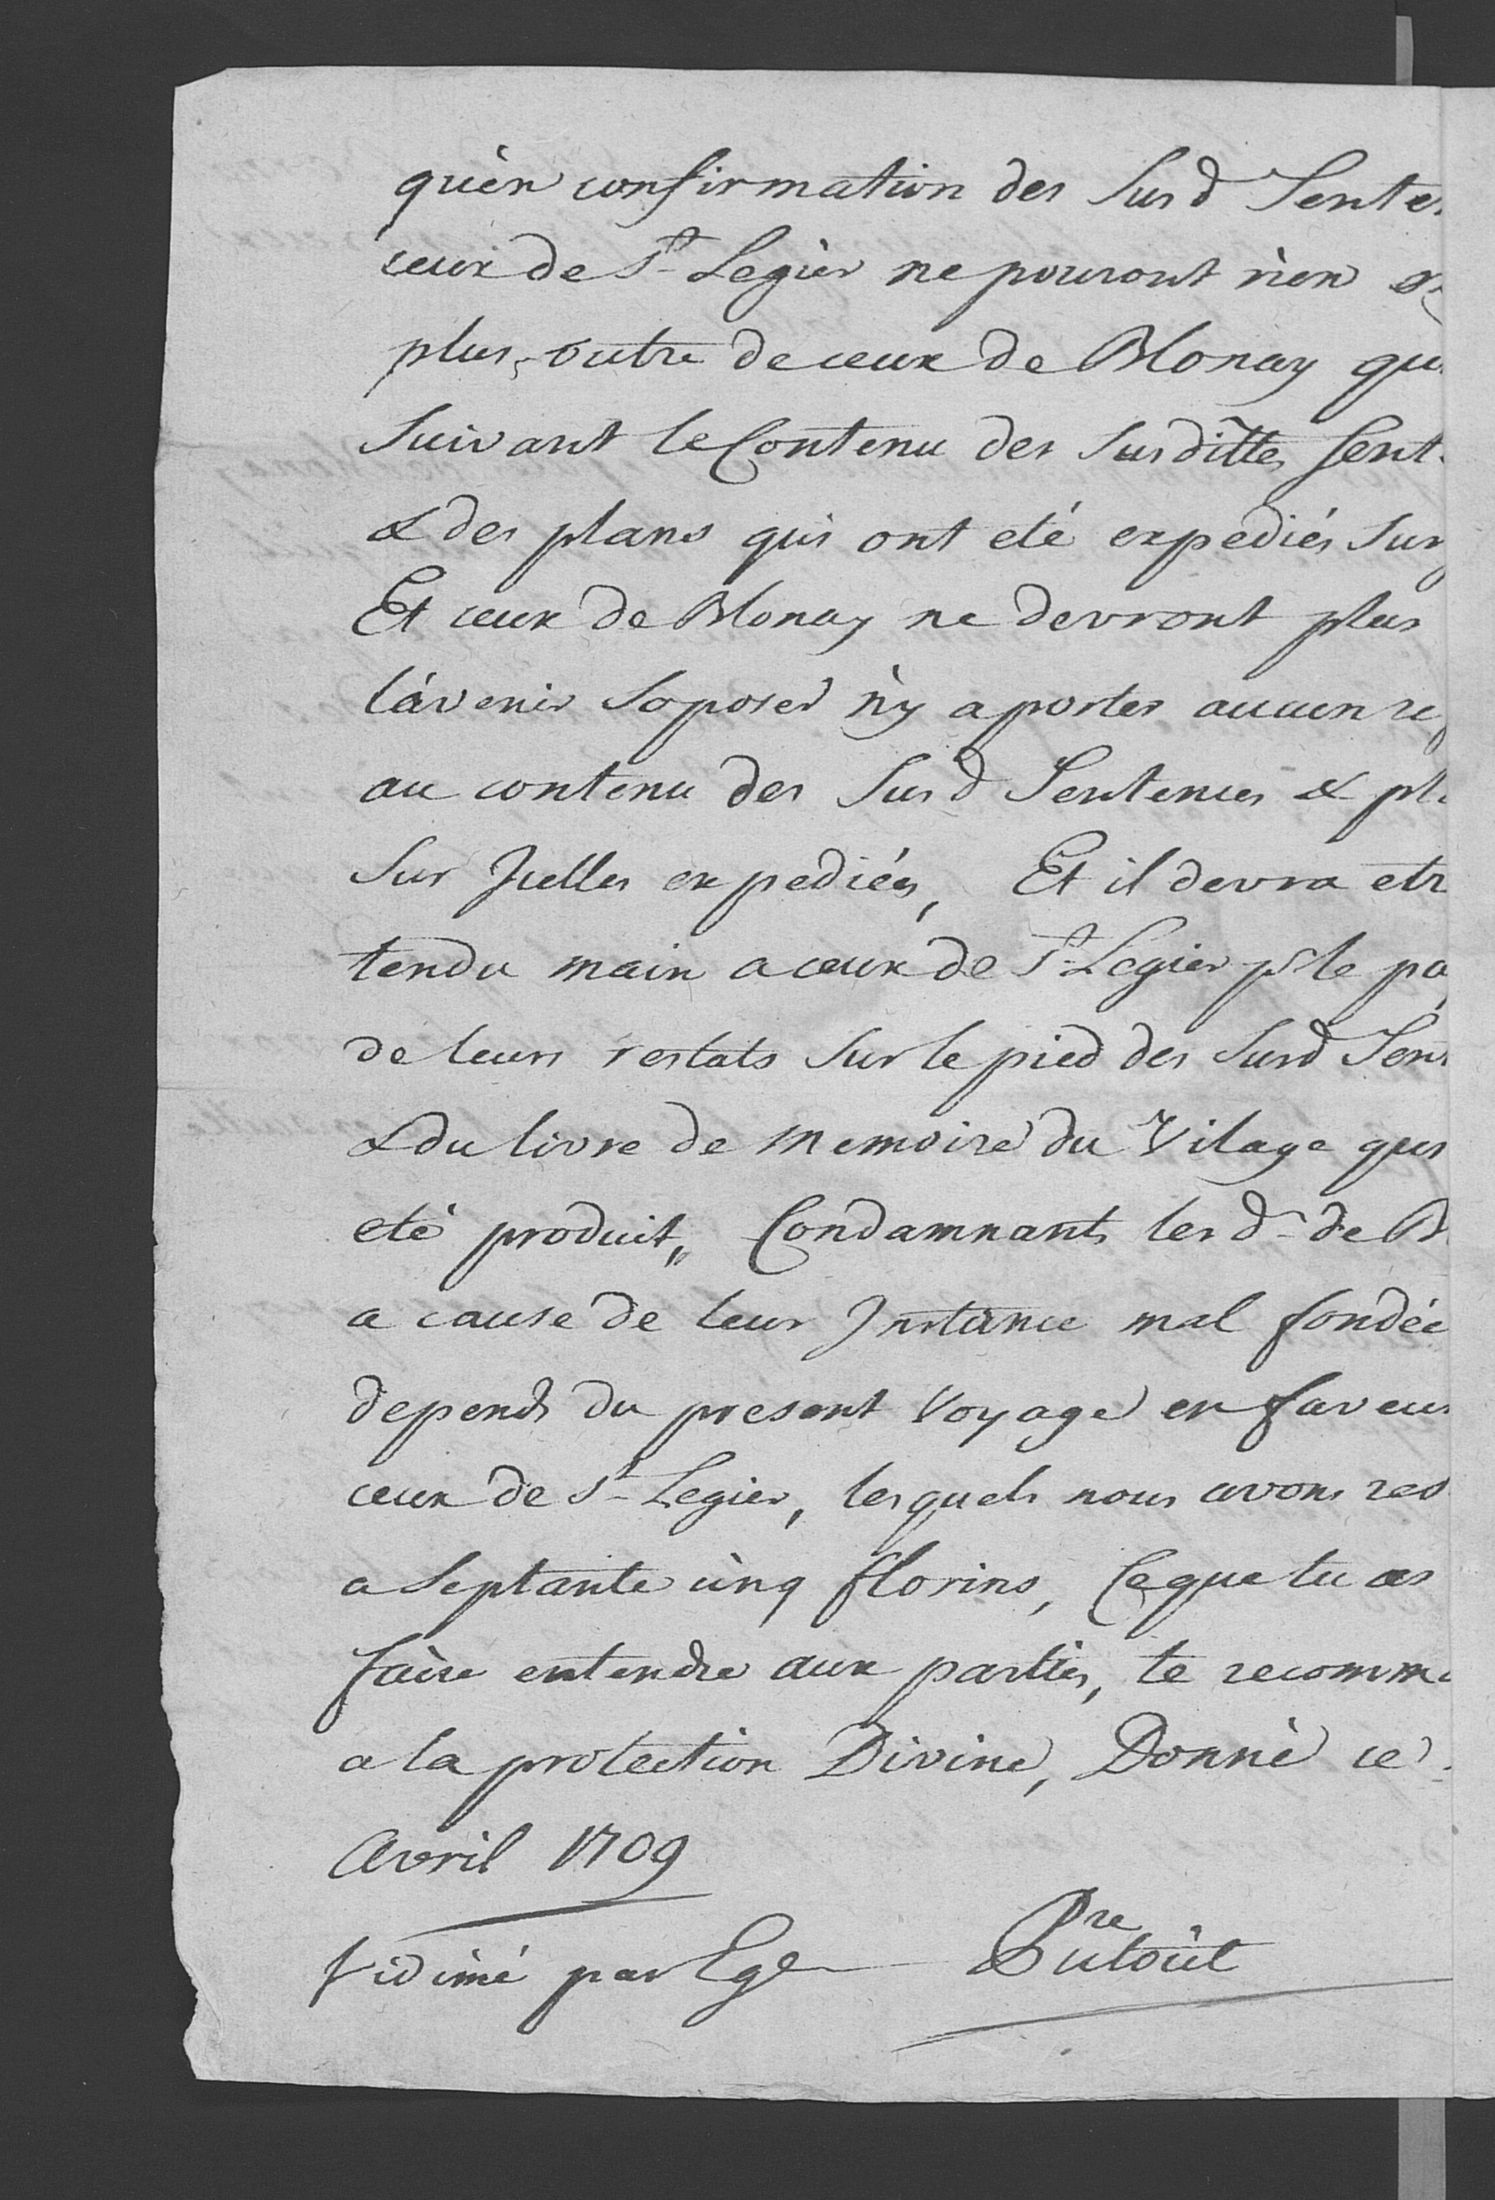 qu'en confirmation des Susd Sente
ceux de St Legier ne pouront rien
plus outre de ceux de Blonay qu
Suivant le Contenu des Susdittes Sent
& des plans qui ont eté expediés Sur
Et ceux de Blonay ne devront plus
l'avenir Soposer n'y aporter aucun re
au contenu des Susd Sentences & pl
Sur Jcelles expediés, Et il devra etr
tendu main a ceux de St Legier pr le pa
de leurs restats Sur le pied des Susd Sen
& du livre de Memoire du Vilage qui
eté produit, Condamnants les d. de B
a cause de leur Jnstance mal fondée
depends du present Voyage en faveur
ceux de St Legier, lesquels nous avons red
a Septante cinq florins, Ce que tu as
faire entendre aux parties, te recomma
a la protection Divine, Donné ce
Avril 1709
Vidimé par Ege Dutoit